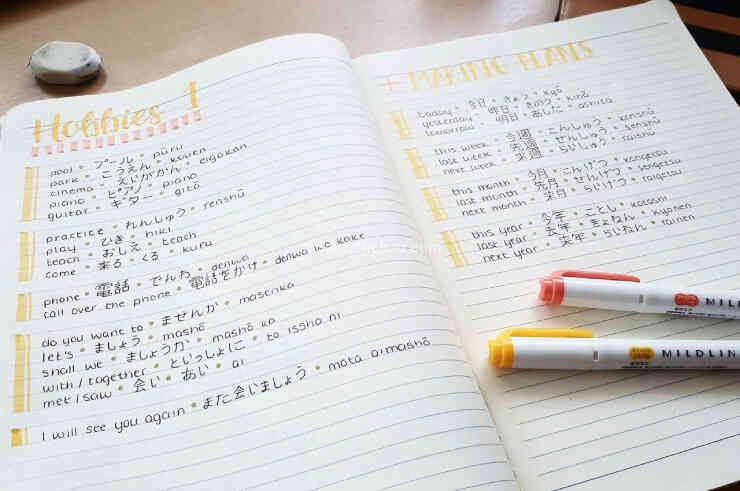 Hobbies 1
pool • プール • pūru
park • こうえん • kouen
cinema • えいがかん • eigakan
piano • ピアノ • piano
guitar • ギター • gitā
practice • れんしゅう • renshū
play • ひき • hiki
teach • おしえ • teach
come • 来る • くる • kuru
phone • 電話 • でんわ • denwa
call over the phone • 電話をかけ • denwa wo kake
do you want to • ませんか • masenka
let's • ましょう • mashō
shall we • ましょうか • mashō ka
with / together • といっしょに • to issho ni
met / saw • 会い • あい • ai
I will see you again • また会いましょう • mata aimashō
+ MAKING PLANS
today • 今日 • きょう • kyō
yesterday • 昨日 • きのう • kinō
tomorrow • 明日 • あした • ashita
this week • 今週 • こんしゅう • konshū
last week • 先週 • せんしゅう • senshū
next week • 来週 • らいしゅう • raishū
this month • 今月 • こんげつ • kongetsu
last month • 先月 • せんげつ • sengetsu
next month • 来月 • らいげつ • raigetsu
this year • 今年 • ことし • kotoshi
last year • 去年 • きょねん • kyonen
next year • 来年 • らいねん • rainen
MILDLIN